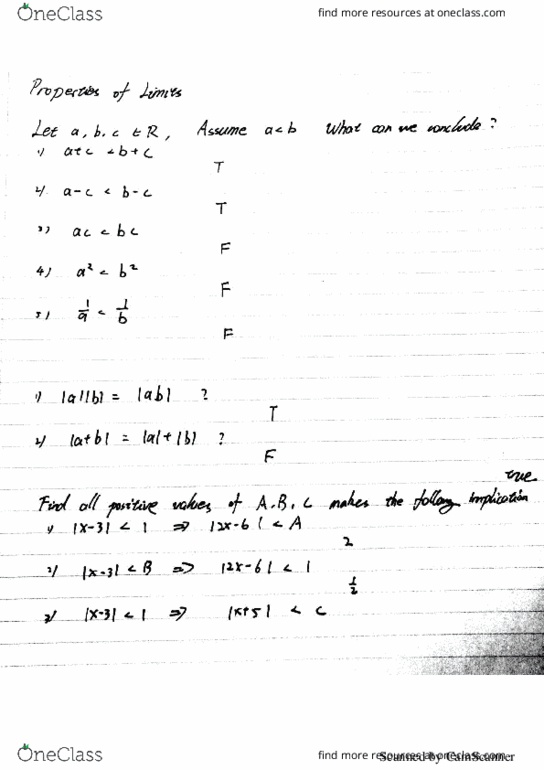 OneClass find more resources at oneclass.com
Properties of Limits
Let a, b, c ∈ R, Assume a < b What can we conclude?
1) a+c < b+c
T
2) a-c < b-c
T
3) ac < bc
F
4) a² < b²
F
5) 1/a < 1/b
F
1) |a||b| = |ab| ?
T
2) |a+b| = |a|+|b| ?
F
true
Find all positive values of A, B, C makes the following implication
1) |x-3| < 1 ⇒ |2x-6| < A
2
2) |x-3| < B ⇒ |2x-6| < 1
1/2
3) |x-3| < 1 ⇒ |x+5| < C
OneClass find more resources at oneclass.com
Scanned by CamScanner